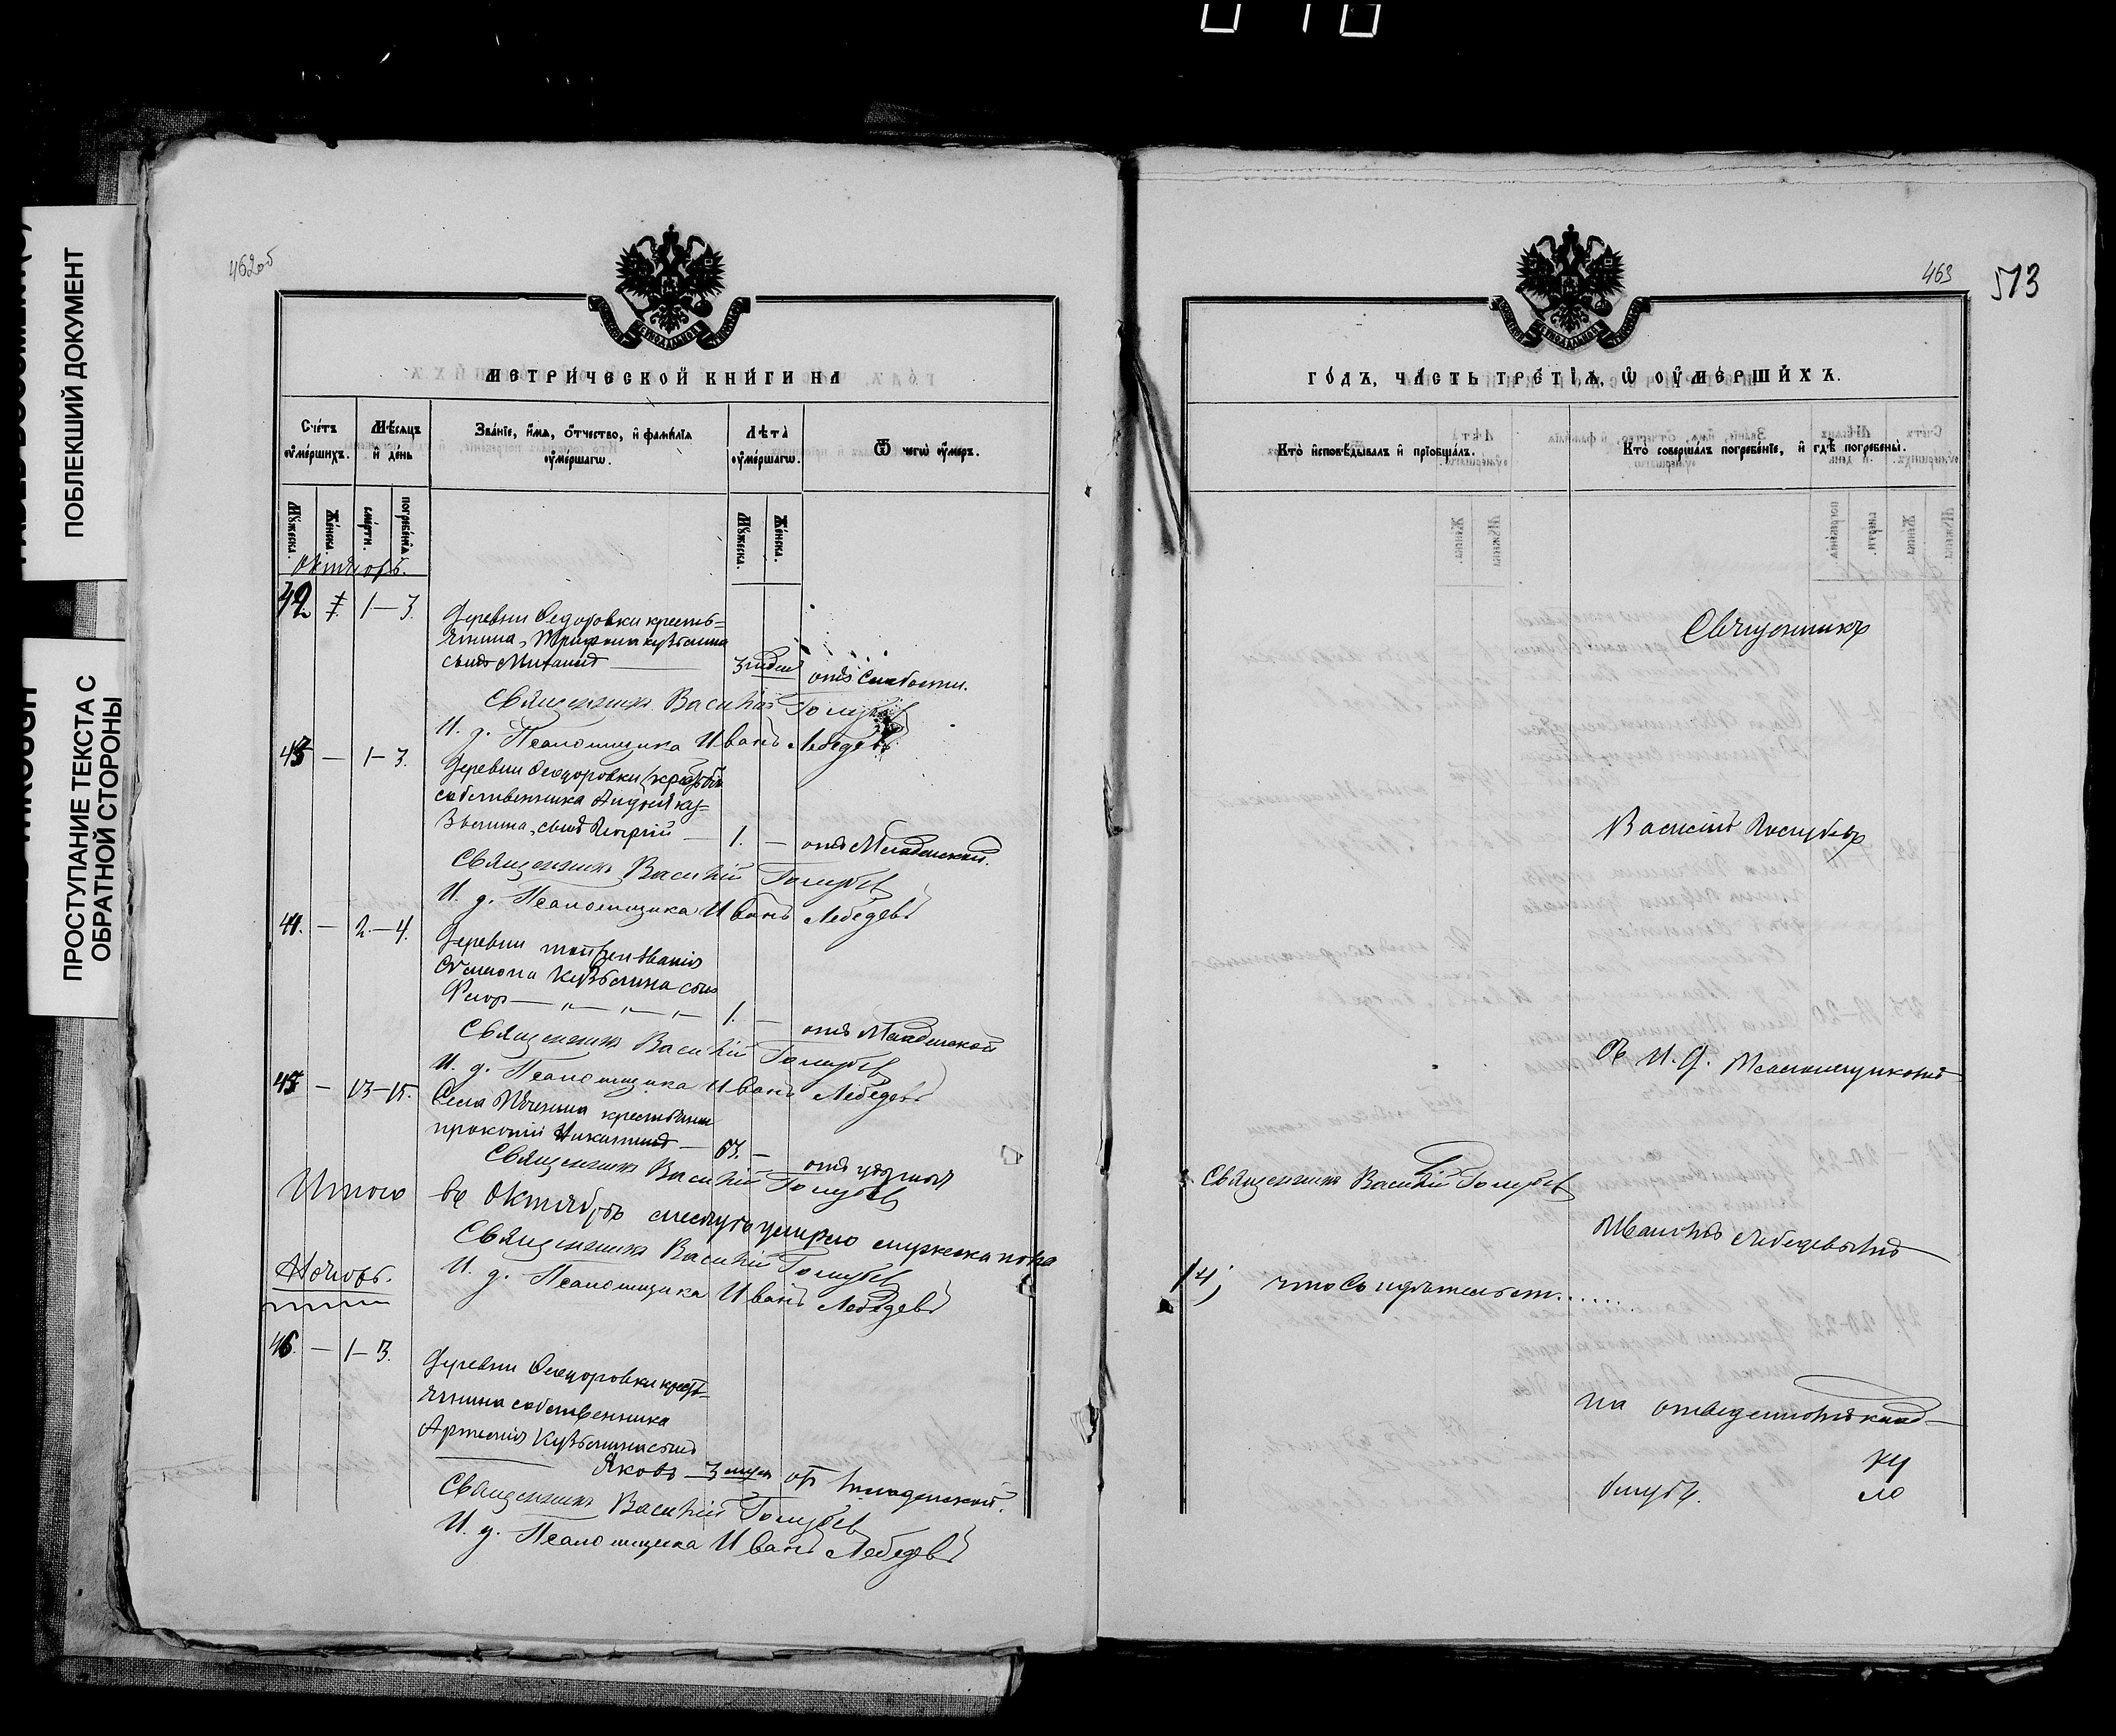 ПОБЛЕКШИЙ ДОКУМЕНТ
ПРОСТУПАНИЕ ТЕКСТА С
ОБРАТНОЙ СТОРОНЫ
462об
МЕТРИЧЕСКОЙ КНИГИ НА
Счетъ оумершихъ.
Мѣсяцъ и день
Званіе, имя, отчество, и фамилія оумершагѡ.
Лѣта оумершагѡ.
Ѿ чегѡ оумеръ.
Мужеска.
Женска.
смерти.
погребенія
Мужеска.
Женска.
Октябрь.
42 1—3.
Деревни Ѳедоровки кресть=
янина, Трифона Кузьмина
сынъ Михаилъ 3 недел отъ слабости.
Священникъ Василій Голубев
И. д. Псаломщика Иванъ Лебедевъ
43 — 1—3.
Деревни Ѳеодоровки крестьян
собственника Андрея Ку=
зьмина, сынъ Георгій — 1. — отъ Младенской.
Священникъ Василій Голубев
И. д. Псаломщика Иванъ Лебедевъ
44. — 2.—4.
Деревни
Кузьмина сынъ
1. — отъ Младенской
Священникъ Василій Голубев
И. д. Псаломщика Иванъ Лебедевъ
45 — 13—15.
Села крестьянин
Прокопій Никитинъ — 63. —
Священникъ Василій Голубев
Итого въ Октябрѣ месяце умерло мужеска пола
Священникъ Василій Голубев
И. д. Псаломщика Иванъ Лебедевъ
Ноябрь.
46. — 1—3.
Деревни Ѳеодоровки кресть-
янина собственника
Артемія Кузьмина сынъ
Яковъ — 3 от младенской.
Священникъ Василій Голубев
И. д. Псаломщика Иванъ Лебедевъ
463
513
ГОДЪ, ЧАСТЬ ТРЕТІЯ, Ѡ ОУМЕРШИХЪ.
Кто исповѣдывалъ и пріобщалъ.
Кто совершалъ погребеніе, и гдѣ погребены.
Священникъ
Василій Голубевъ
съ И. д. Псаломщикомъ
Священникъ Василій Голубев
Иваномъ Лебедевымъ
14; что свидетельст.......
на отведенномъ клад-
бищѣ.